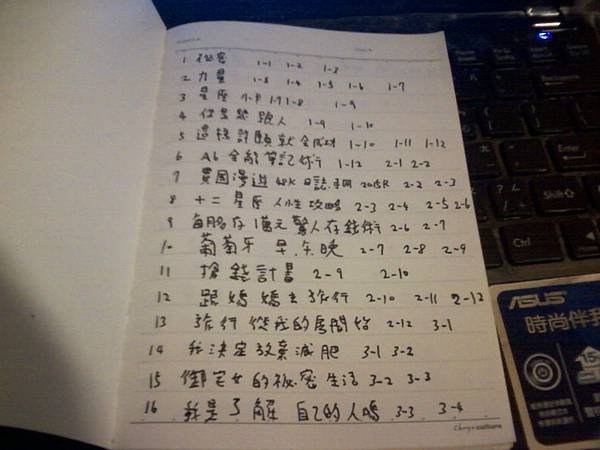 1 秘密 1-1 1-2 1-3
2 力量 1-3 1-4 1-5 1-6 1-7
3 星座小卡 1-7 1-8 1-9
4 1-9 1-10
5 這樣許願就會成功 1-10 1-11 1-12
6 A6 全能筆記術 1-12 2-1 2-2
7 異國漫遊 48K 日誌手冊 2015R 2-2 2-3
8 十二星座人性攻略 2-3 2-4 2-5 2-6
9 每月存1萬元驚人存錢術 2-6 2-7
10 葡萄牙 早.午.晚 2-7 2-8 2-9
11 搶錢計畫 2-9 2-10
12 跟媽媽去旅行 2-10 2-11 2-12
13 旅行從我的房間始 2-12 3-1
14 我決定放棄減肥 3-1 3-2
15 御宅女的祕密生活 3-2 3-3
16 我是了解自己的人嗎 3-3 3-4
culture
Ctrl
Alt
Shift
ASUS
時尚伴我